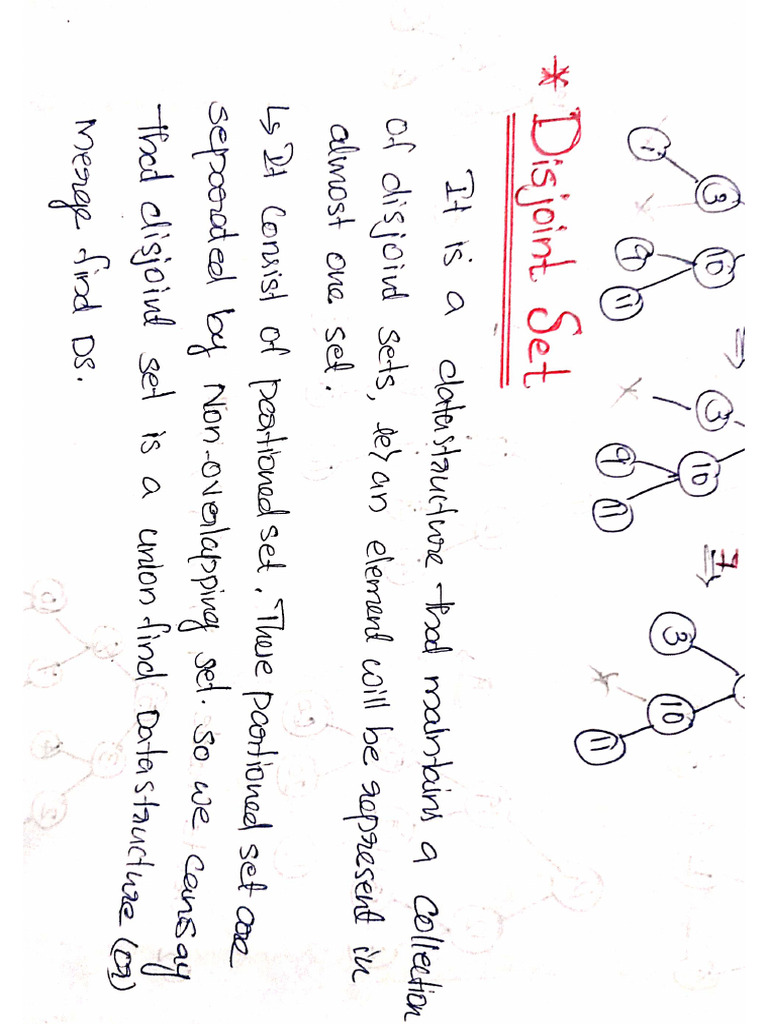 1 3 9 10 11 ⇒ 3 9 10 11 7 ⇒ 3 10 11
* Disjoint Set
It is a datastructure that maintains a collection
of disjoint sets, ie) an element will be represent in
almost one set.
↳ It consist of partioned set. These partioned set are
separated by Non-overlapping set. So we can say
that disjoint set is a union find Datastructure (or)
Merge find DS.